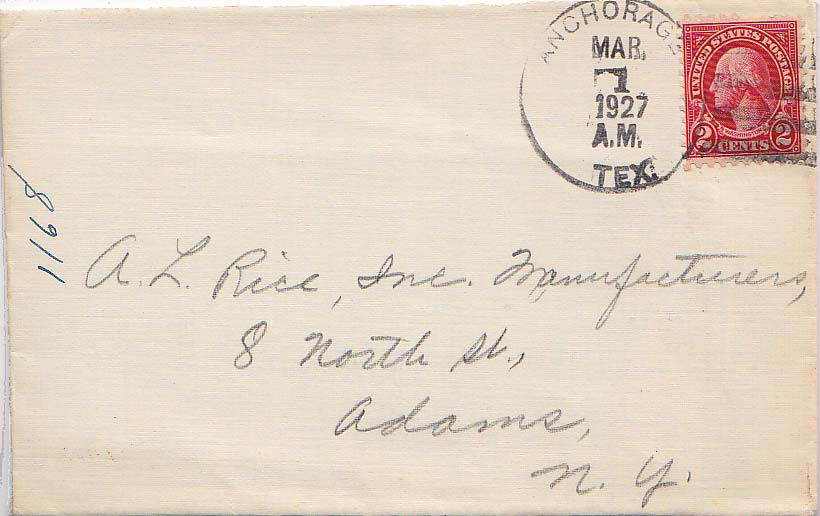 ANCHORAGE
MAR.
1
1927
A.M.
TEX.
UNITED STATES POSTAGE
WASHINGTON
2 CENTS 2
1198
A. L. Rice, Inc. Manufacturers,
8 North St.,
Adams,
N. Y.